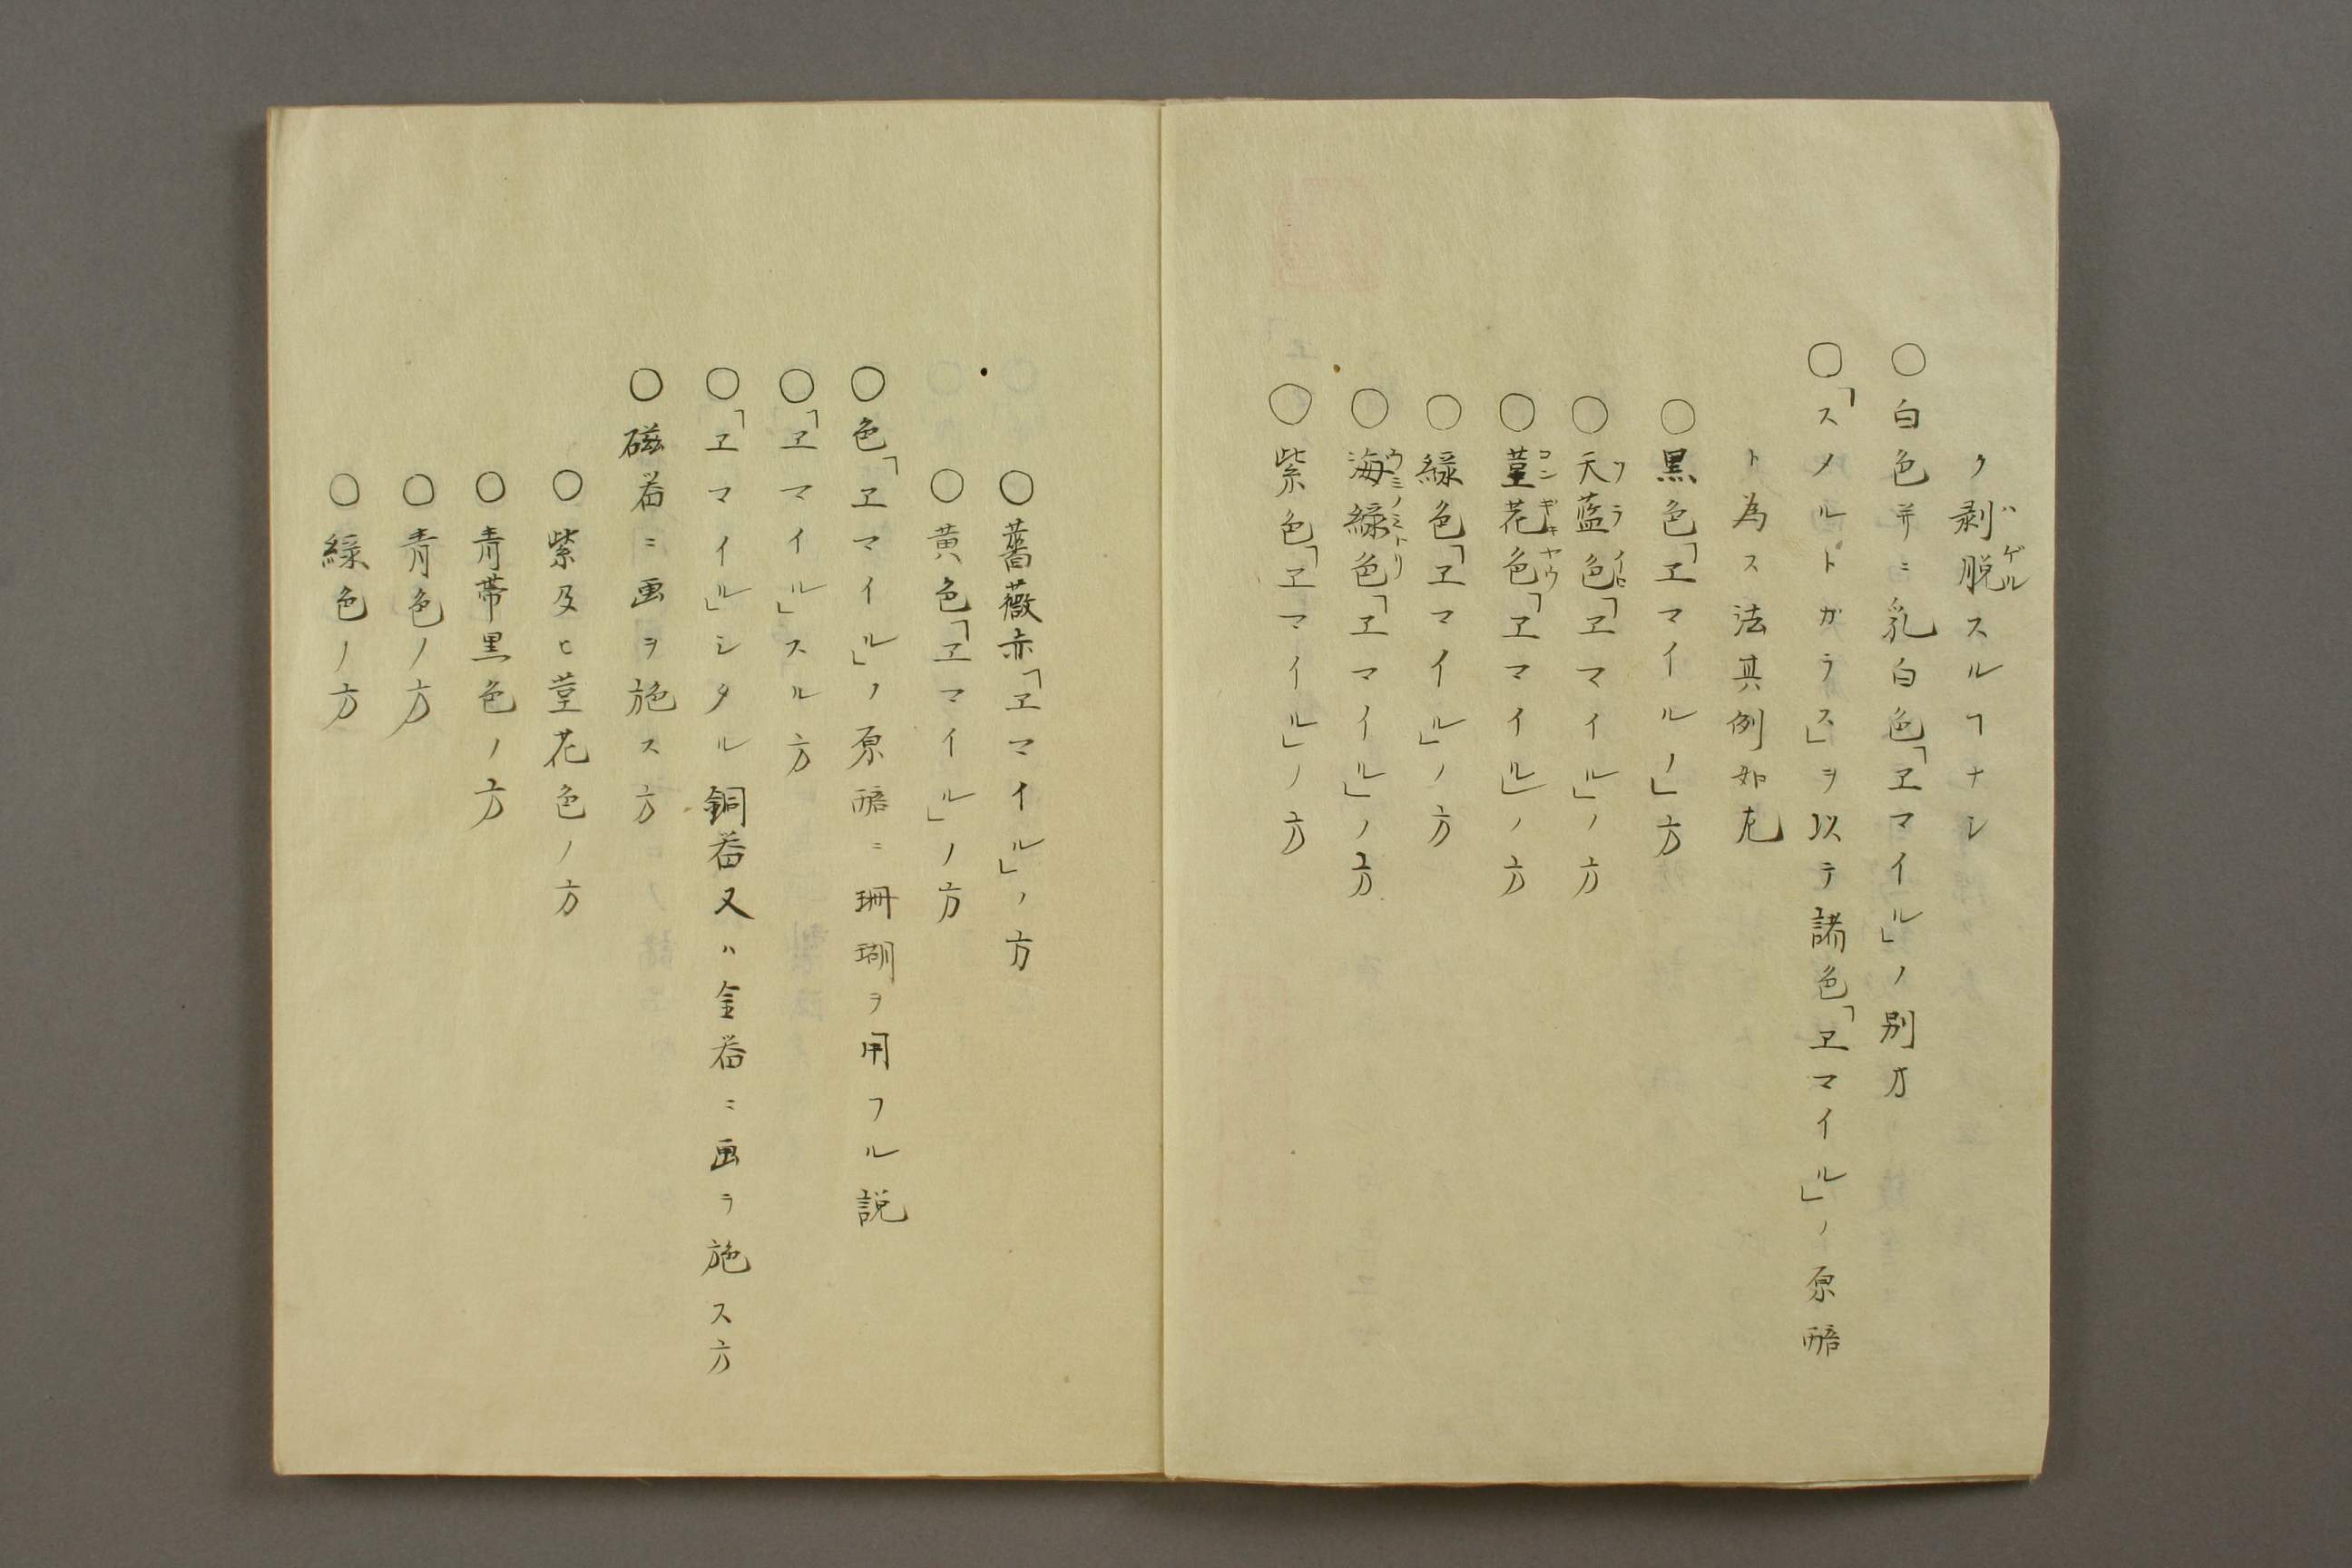 ク剥脱スルヿナシ
ハゲル
○白色并ニ乳白色「ヱマイル」ノ別方
○「スメルトガラス」ヲ以テ諸色「ヱマイル」ノ原
ト為ス法其例如左
○黒色「ヱマイルノ」方
○天藍色「ヱマイル」ノ方
ソライロ
○菫花色「ヱマイル」ノ方
コンギキヤウ
○緑色「ヱマイル」ノ方
○海緑色「ヱマイル」ノ方
ウミノミトリ
○紫色「ヱマイル」ノ方
○薔薇赤「ヱマイル」ノ方
○黄色「ヱマイル」ノ方
○色「ヱマイル」ノ原ニ珊瑚ヲ用フル説
○「ヱマイル」スル方
○「ヱマイル」シタル銅器又ハ金器ニ画ヲ施ス方
○磁器ニ画ヲ施ス方
○紫及ヒ菫花色ノ方
○青帯黒色ノ方
○青色ノ方
○緑色ノ方